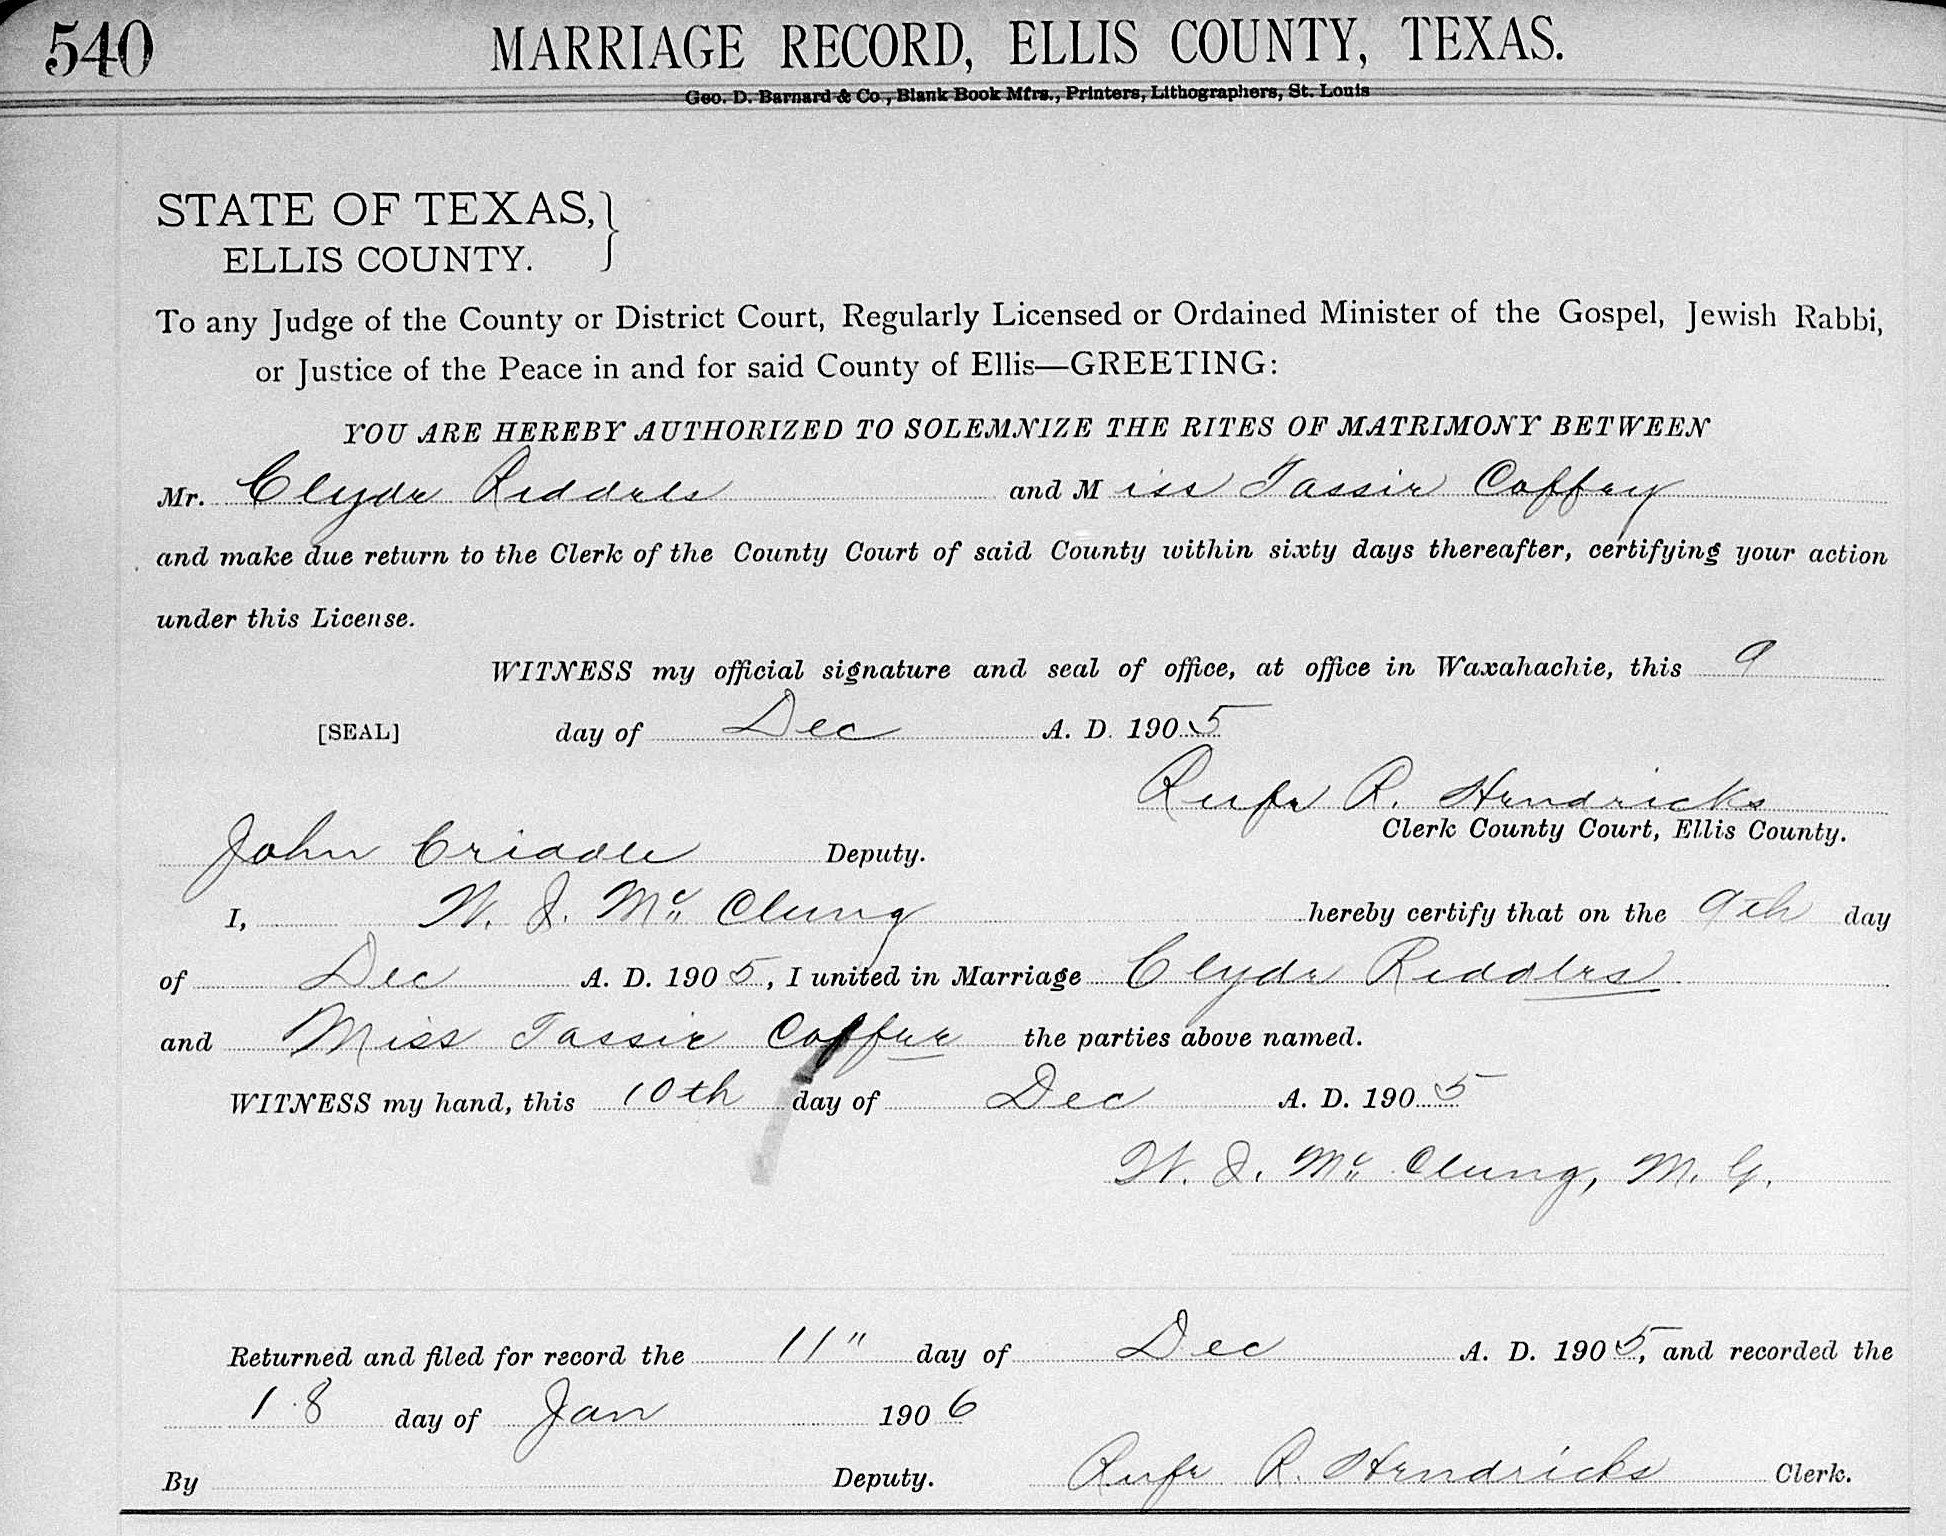 540 MARRIAGE RECORD, ELLIS COUNTY, TEXAS.
Geo. D. Barnard & Co., Blank Book Mfrs., Printers, Lithographers, St. Louis
STATE OF TEXAS,
ELLIS COUNTY.
To any Judge of the County or District Court, Regularly Licensed or Ordained Minister of the Gospel, Jewish Rabbi,
or Justice of the Peace in and for said County of Ellis—GREETING:
YOU ARE HEREBY AUTHORIZED TO SOLEMNIZE THE RITES OF MATRIMONY BETWEEN
Mr. Clyde Riddels and Miss Tassie Coffey
and make due return to the Clerk of the County Court of said County within sixty days thereafter, certifying your action
under this License.
WITNESS my official signature and seal of office, at office in Waxahachie, this 9
[SEAL] day of Dec A. D. 1905
Rufe R. Hendricks
Clerk County Court, Ellis County.
John Criddle Deputy.
I, W. J. Mc Clung hereby certify that on the 9th day
of Dec A. D. 1905, I united in Marriage Clyde Riddles
and Miss Tassie Coffee the parties above named.
WITNESS my hand, this 10th day of Dec A. D. 1905
W. J. Mc Clung, M. G.
Returned and filed for record the 11" day of Dec A. D. 1905, and recorded the
18 day of Jan 1906
By Deputy. Rufe R. Hendricks Clerk.